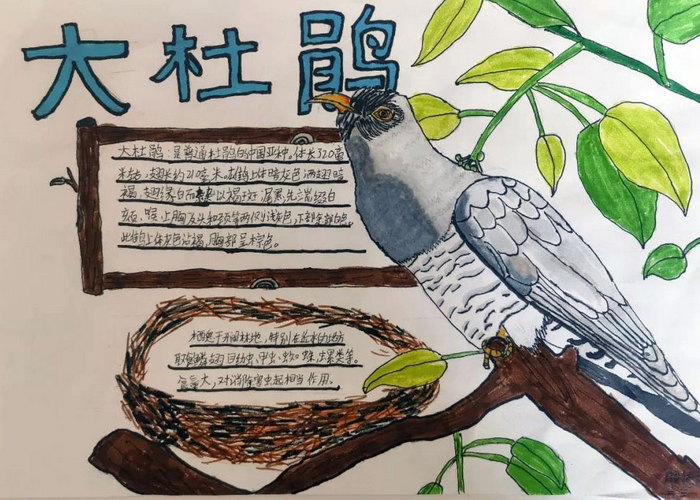 大杜鹃
大杜鹃:是普通杜鹃的中国亚种。体长320毫
米左右,翅长约210毫米。雄鸟上体暗灰色,两翅暗
褐,翅缘白而杂以褐斑,尾黑先端缀白
喉、上胸及头和颈等两侧浅灰色,下部余部白色
此鸟上体灰色沾褐,胸部呈棕色。
栖息于开阔林地,特别在近水的地方
取食鳞翅目幼虫、甲虫、蜘蛛、螺类等。
食量大,对消除害虫起相当作用。